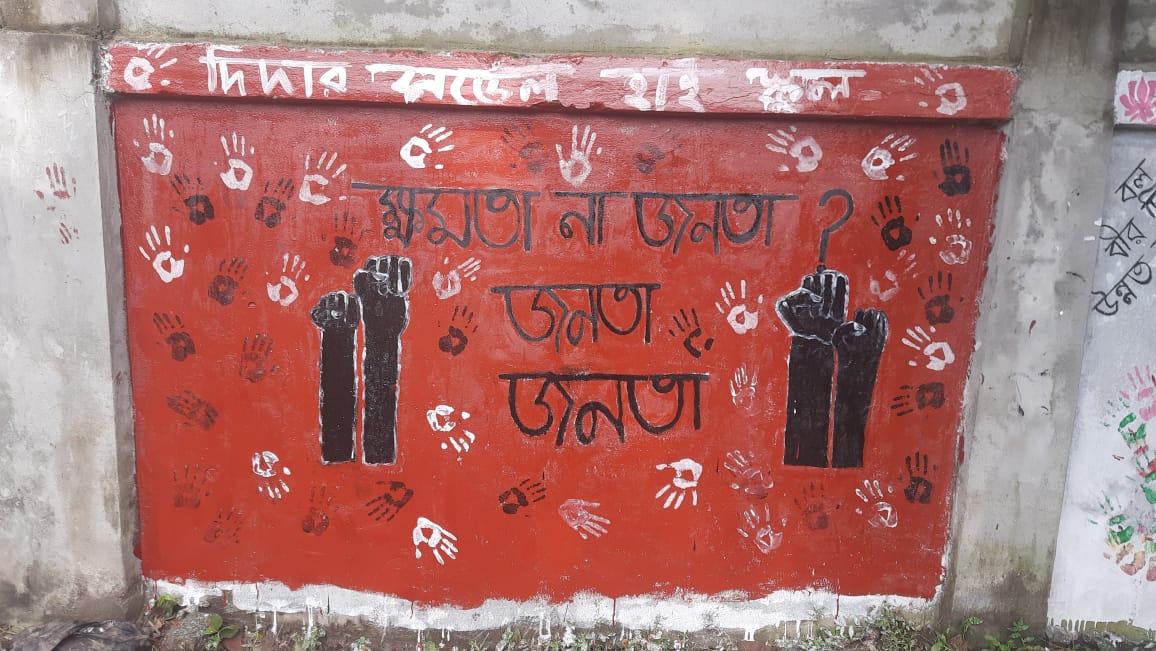 দিদার মডেল হাই স্কুল
ক্ষমতা না জনতা ?
জনতা
জনতা
বল
বীর
উন্নত